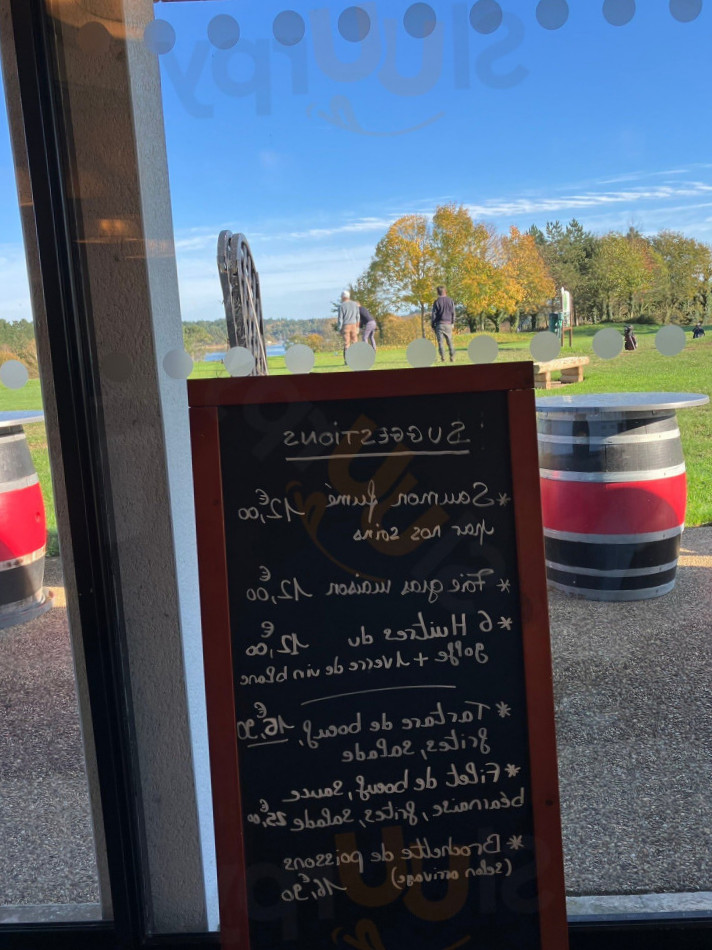 SUGGESTIONS
* Saumon fumé 12,00€
par nos soins
* Foie gras maison 12,00€
* 6 Huîtres du 12,00€
golfe + 1 verre de vin blanc
* Tartare de boeuf, 16,90€
frites, salade
* Filet de boeuf, sauce
béarnaise, frites, salade 25,00€
* Brochette de poissons
(selon arrivage) 16,90€
Sluurpy